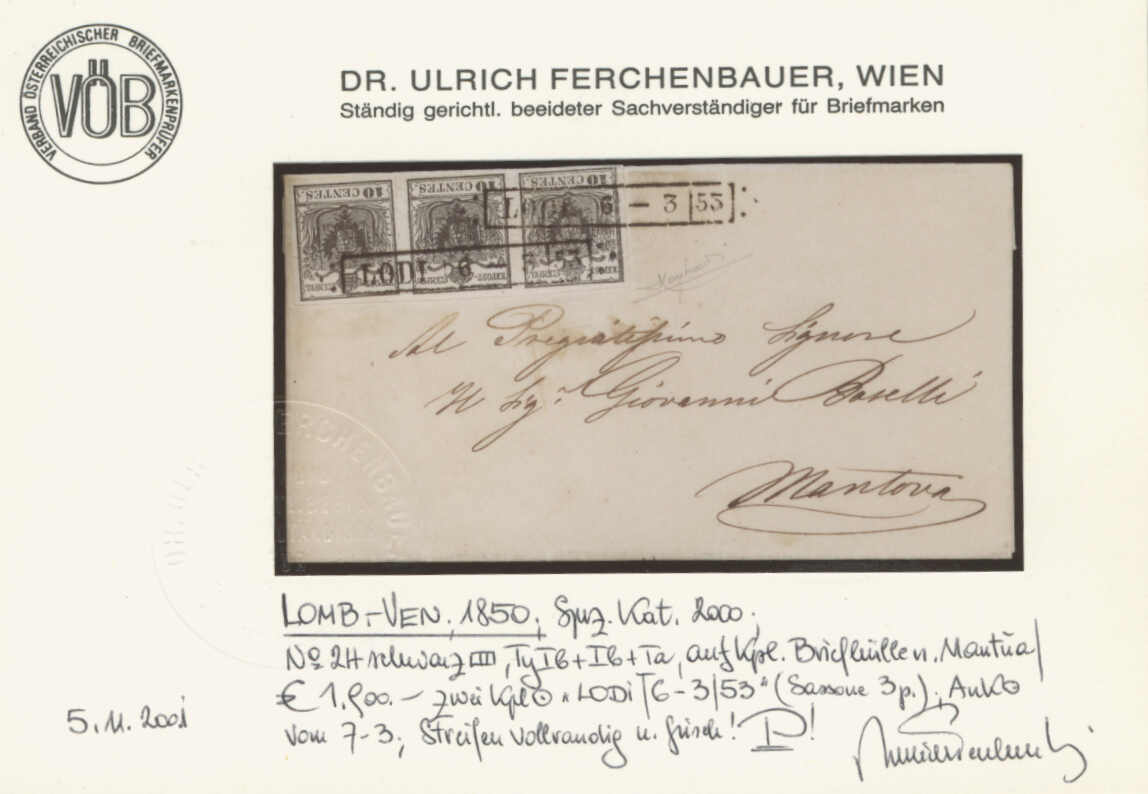 VERBAND ÖSTERREICHISCHER BRIEFMARKENPRÜFER
VÖB
DR. ULRICH FERCHENBAUER, WIEN
Ständig gerichtl. beeideter Sachverständiger für Briefmarken
10 CENTES. 10 CENTES. 10 CENTES.
LODI 6 – 3 53
LODI 6 – 3 53
Al Pregiatissimo Signore
Il Sig.r Giovanni Boselli
Mantova
LOMB.-VEN. 1850; Spez. Kat. 2000;
No 2H schwarz III, Ty Ib+Ib+Ia, auf kpl. Briefhülle n. Mantua/
€ 1.900.– zwei kpl "LODI/6-3/53" (Sassone 3p.), AnkO
vom 7-3; Streifen vollrandig u. frisch! P!
5. 11. 2001